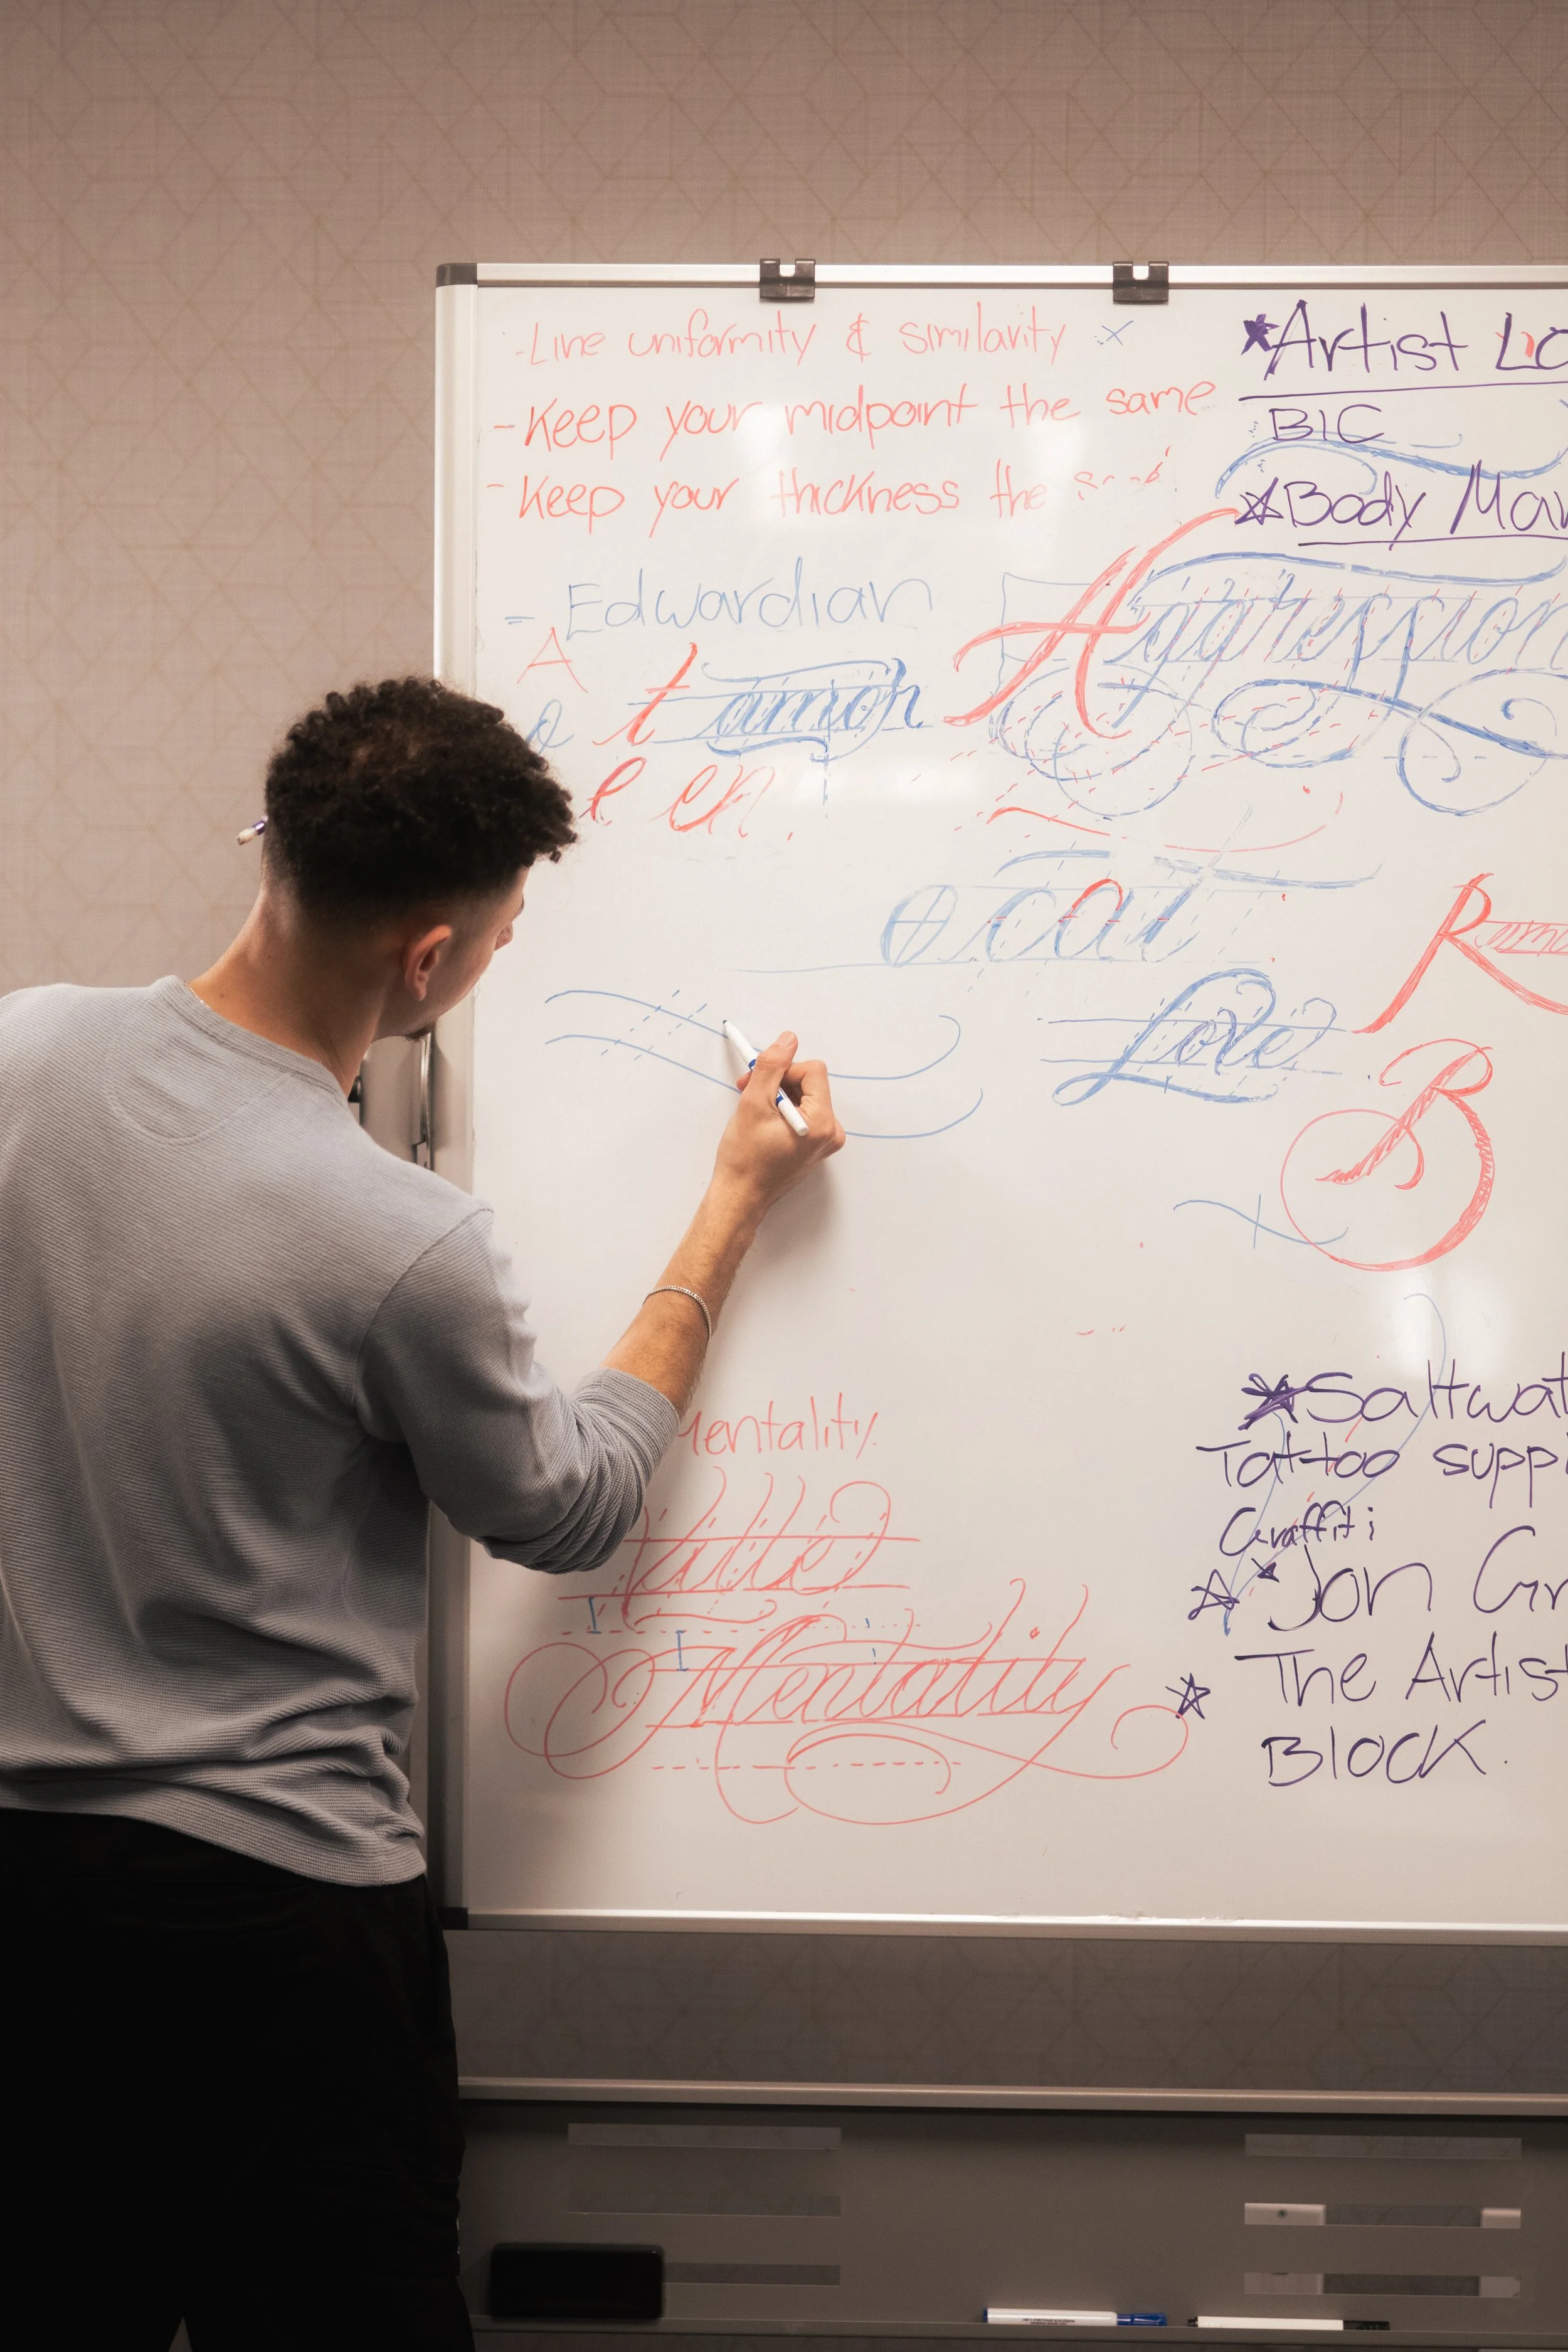 -Line uniformity & similarity x
-Keep your midpoint the same
-Keep your thickness the
- Edwardian
A
o t amor
e en
Aggression
o cat
Love
R
B
Mentality.
Mentality
*Artist Lo
BIC
*Body Mar
*Saltwat
Tattoo suppl
Graffiti
*Jon Gr
*The Artist
BLOCK.